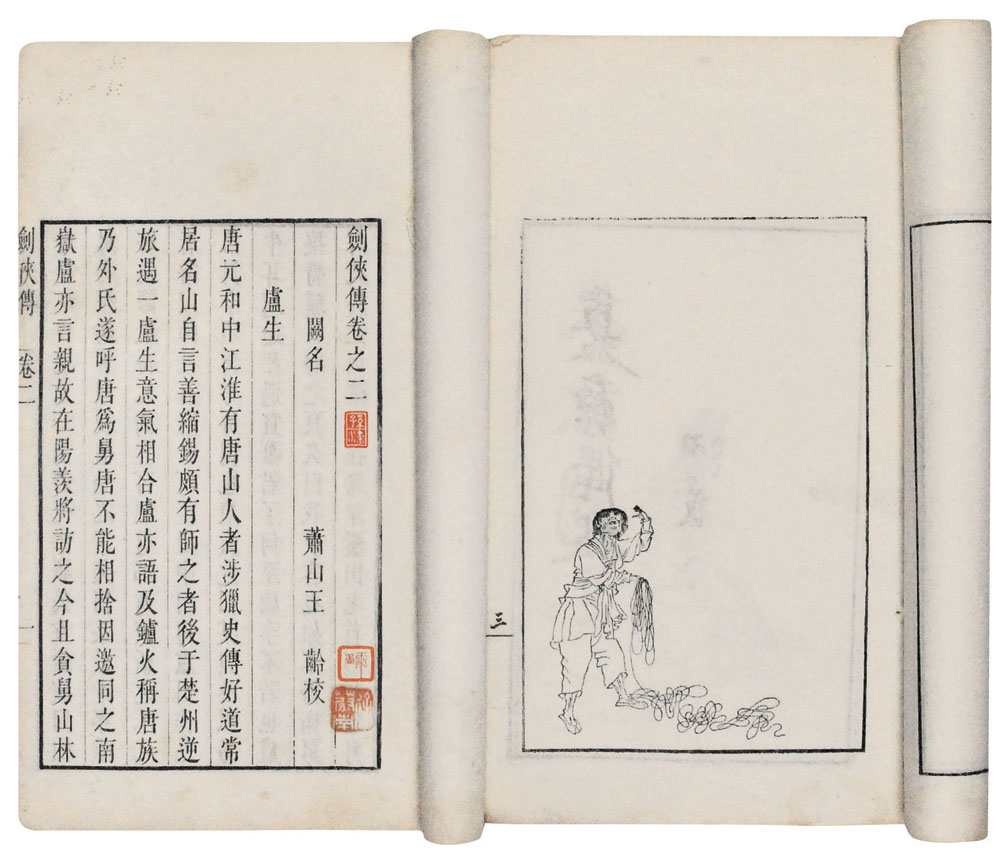 三
劍俠傳卷之二
闕名　蕭山王齡校
盧生
唐元和中江淮有唐山人者涉獵史傳好道常
居名山自言善縮錫頗有師之者後于楚州逆
旅遇一盧生意氣相合盧亦語及鑪火稱唐族
乃外氏遂呼唐爲舅唐不能相捨因邀同之南
嶽盧亦言親故在陽羨將訪之今且貪舅山林
劍俠傳　卷二　一